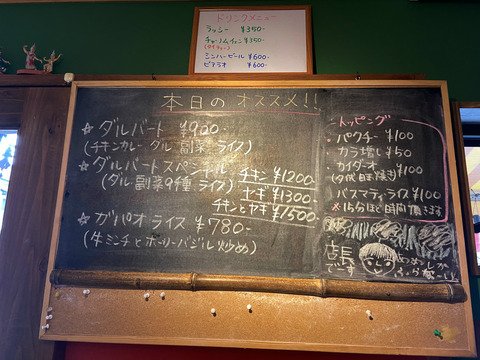 ドリンクメニュー
ラッシー ¥350-
チャーノムイェン ¥350-
(タイティー)
ミンハービール ¥600-
ビアラオ ¥600-
本日の オススメ!!
☆ ダルバート ¥900-
(チキンカレー ダル 副菜 ライス)
☆ ダルバートスペシャル
(ダル 副菜9種 ライス)
チキン ¥1200-
ヤギ ¥1300-
チキンとヤギ ¥1500-
☆ ガパオ ライス ¥780-
(牛ミンチとホーリーバジル炒め)
トッピング
・パクチー ¥100
・カラ増し ¥50
・カイダーオ ¥100
(タイ式目玉焼き)
・バスマティライス ¥100
※15分ほど時間頂きます
店長でーす